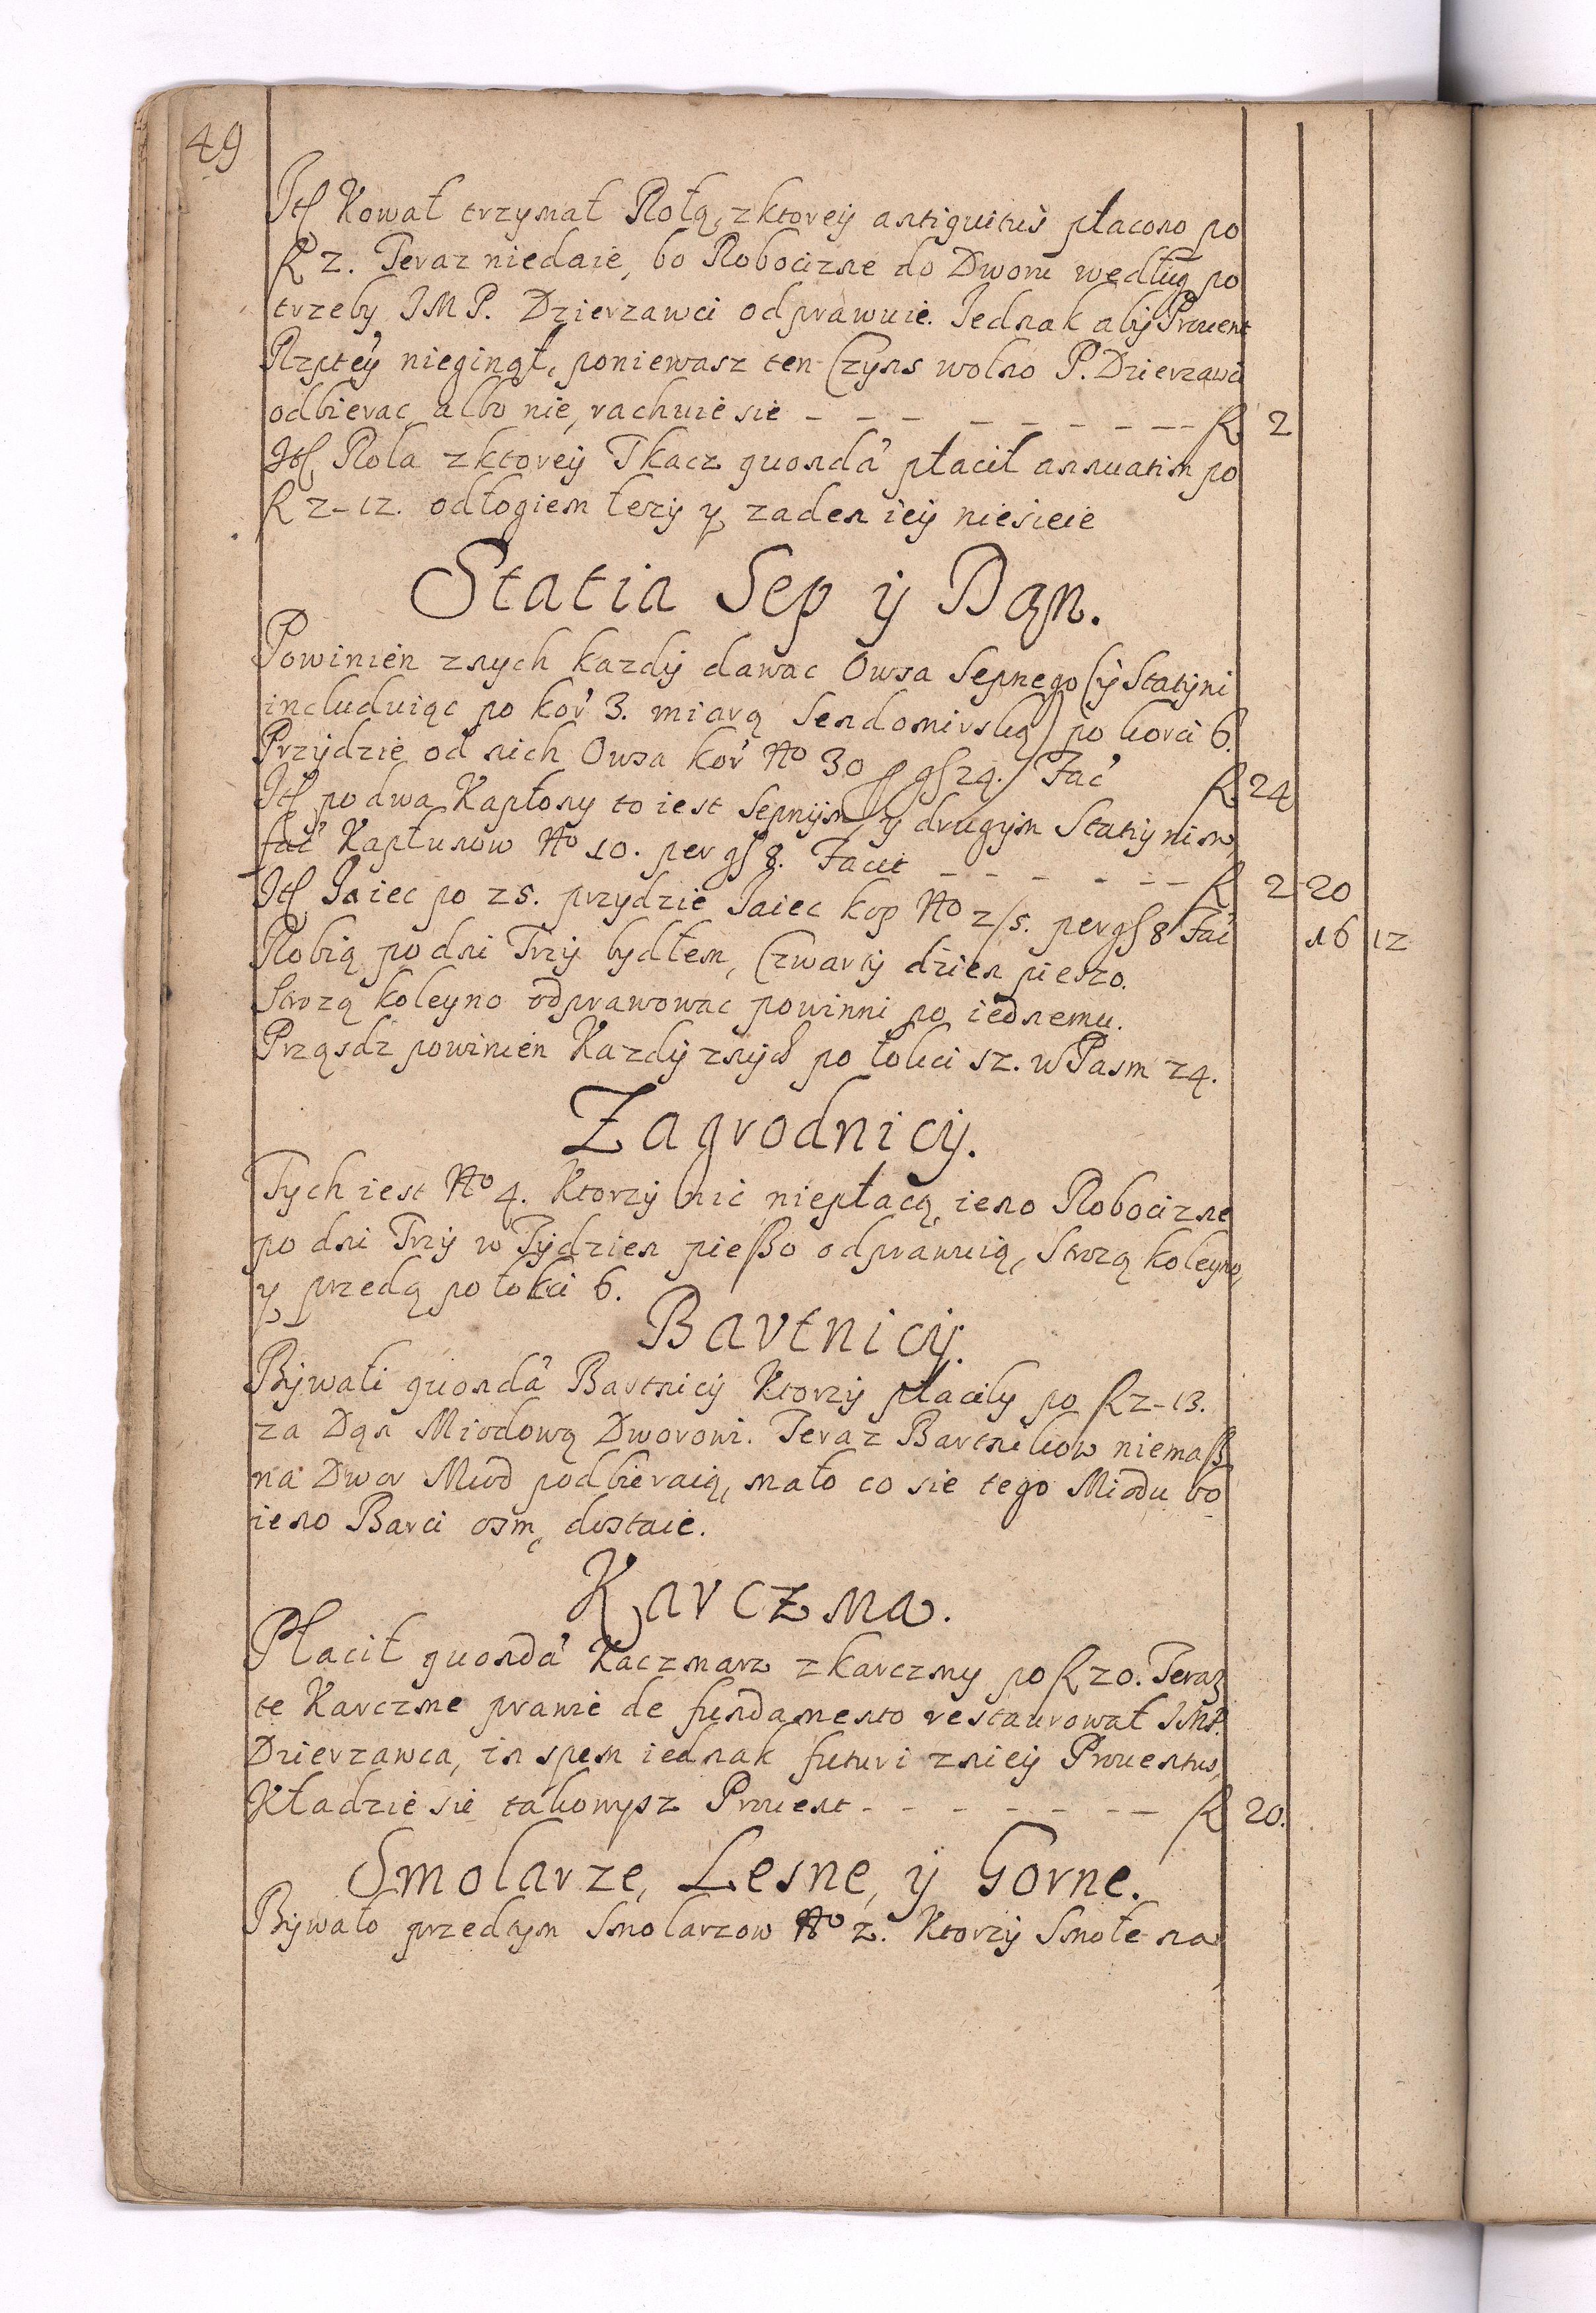 49
Itſ Kowal trzymał Rolą, z ktoreÿ antiquitus płacono po
ƒ 2. Teraz niedaie, bo Robociznę do Dworu według po
trzeby JMP. Dzierzawci odprawuie. Jednak abÿ Prouent
Rzpteÿ niegingł, poniewasz ten Czyns wolno P. Dzierzawci
odbierac albo nie, rachuie sie _ _ _ _ _ _ _ _ _ ƒ 2
Itſ Rola z ktoreÿ Tkacz quondã płacił annuatim po
ƒ 2-12. odłogiem lezÿ y zaden ieÿ niesieie
Statia Sep ÿ Dąn.
Powinien znych kazdÿ dawac Owsa Sepnego (ÿ Statÿni
includuiąc po kor 3. miarą Sendomirską) po korci 6.
Przÿdzie od nich Owsa kor No 30 p gſ 24. / Fac ƒ 24
Itſ po dwa Kapłony to iest Sepnÿm, y drugÿm Statÿnim,
fac Kapłunow No 10. per gſ 8. Facit _ _ _ _ _ _ ƒ 2 20
Itſ Jaiec po 25. przydzie Jaiec kop No 2/5. per gſ 8 Fac 16 12
Robią po dni Trzÿ bydłem, Czwartÿ dzien pieszo.
Strozą koleyno odprawowac powinni po iednemu.
Prząsdz powinien Kazdÿ znÿch po łokci 12. w Pasm 24.
Zagrodnicÿ.
Tych iest No 4. Ktorzÿ nic niepłacą, ieno Robociznę
po dni Trzÿ w Tÿdzien pießo odprawuią, Strozą koleyno,
y przedą po łokci 6.
Bartnicÿ.
Bÿwali quondã Bartnicÿ Ktorzÿ płacily po ƒ 2-13.
za Dąn Miodową Dworowi. Teraz Bartnikow niemaß
na Dwor Miod podbieraią, mało co sie tego Miodu bo
ieno Barci osmę dostaie.
Karczma.
Płacił quondã Kaczmarz z karczmy po ƒ 20. Teraz
te Karczme prawie de fundamento restaurował JMP.
Dzierzawca, in spem iednak futuri znieÿ Prouentus,
Kładzie sie takowysz Prouent - - - - - - - ƒ 20.
Smolarze, Lesne, ÿ Gorne.
Bÿwało przedtÿm Smolarzow No 2. Ktorzÿ Smołe na